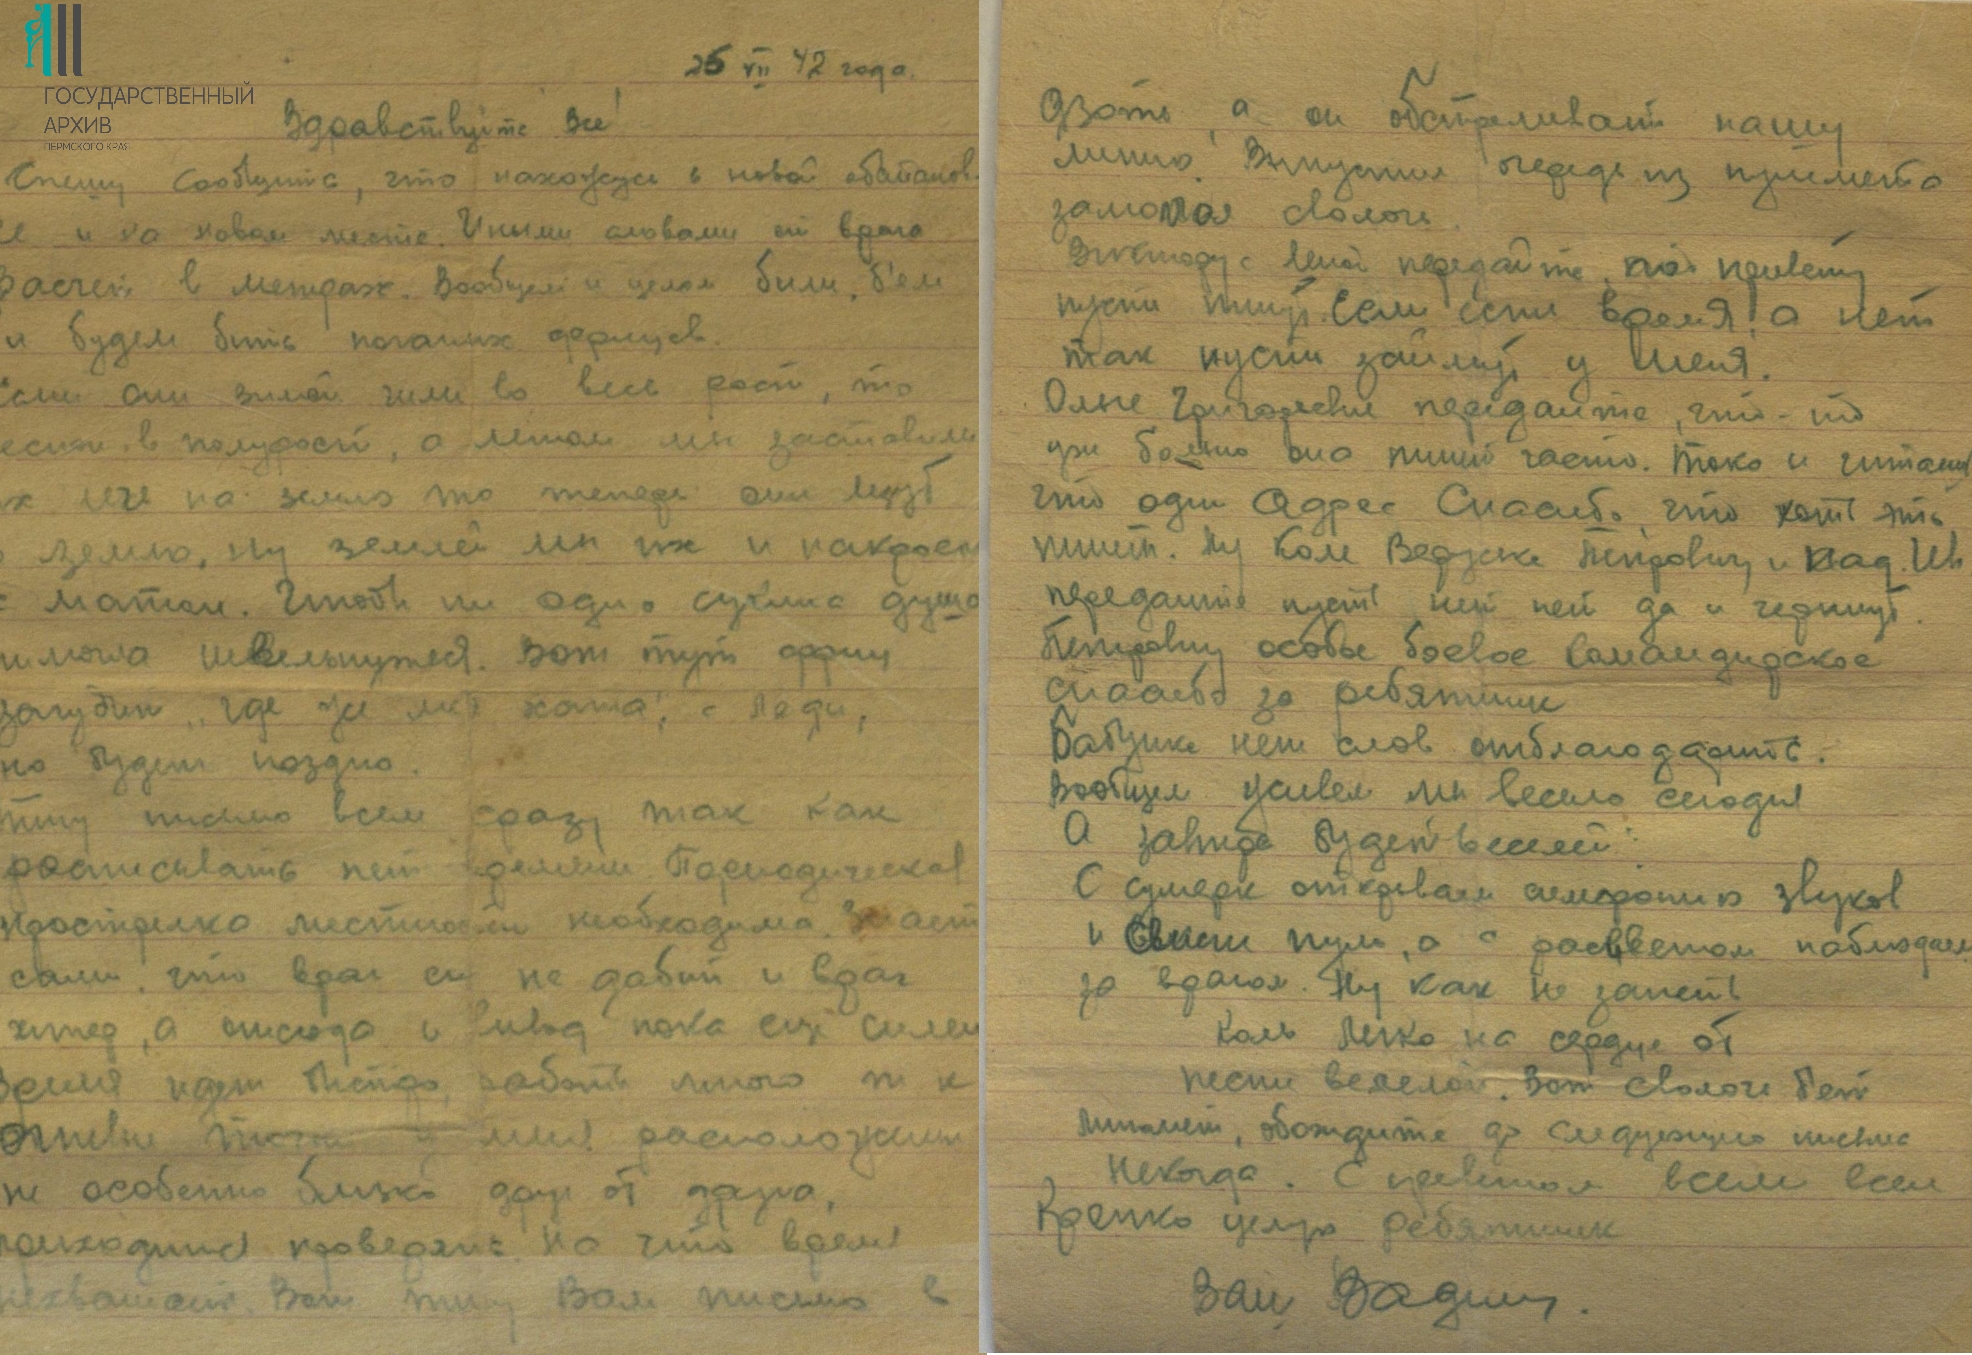 ГОСУДАРСТВЕННЫЙ
АРХИВ
ПЕРМСКОГО КРАЯ
25 VII 42 года.
Здравствуйте все!
Спешу сообщить, что нахожусь в новой обстанов-
ке и на новом месте. Иными словами от врага
Расчет в метрах. Вообщем и целом били, бьем
и будем бить поганых фрицев.
Если они зимой шли во весь рост, то
весной в полурост, а летом мы заставили
их лечь на землю то теперь они лезут
в землю, ну землей мы их и накроем
с матом. Чтобы ни одна сукина душа
немогла шевельнуться. Вот тут фриц
загубит „где же моя хата", с Леди,
но будет поздно.
Пишу письмо всем сразу так как
расписывать нет времени. Периодическая
прострелка местности необходима. Знаете
сами, что враг ещ не добит и враг
хитер, а отсюда и вывод пока ещё силен
Время идет быстро, работы много т к
огневые точки у меня расположены
не особенно близко друг от друга,
приходится проверять На что время
нехватает. Вот пишу Вам письмо в
Дзоте, а он обстреливает нашу
линию. Выпустил очередь из пулемета
замолчал сволочь.
Виктору с Леной передайте мой привет
пусть пишут. Если есть время! а нет
так пусть займут у меня.
Ольге Григорьевне передайте, что-то
уж больно она пишет часто. Тока и читаешь
что один Адрес Спасибо, что хоть это
пишет. Ну Коле Петровичу и
передайте пусть нет нет да и черкнут.
Петровичу особое боевое Командирское
спасибо за ребятишек
Бабушке нет слов отблагодарить.
Вообщем живем мы весело сегодня
А завтра будет веселей.
С сумерк открываем симфонию звуков
и Свист пуль, а с рассветом наблюдаем
за врагом. Ну как не запеть
Коль Легко на сердце от
песни веселой. Вот сволочь бьет
Миномет, обождите до следующего письма
Некогда. С приветом всем всем
Крепко целую ребятишек
Ваш Вадим.